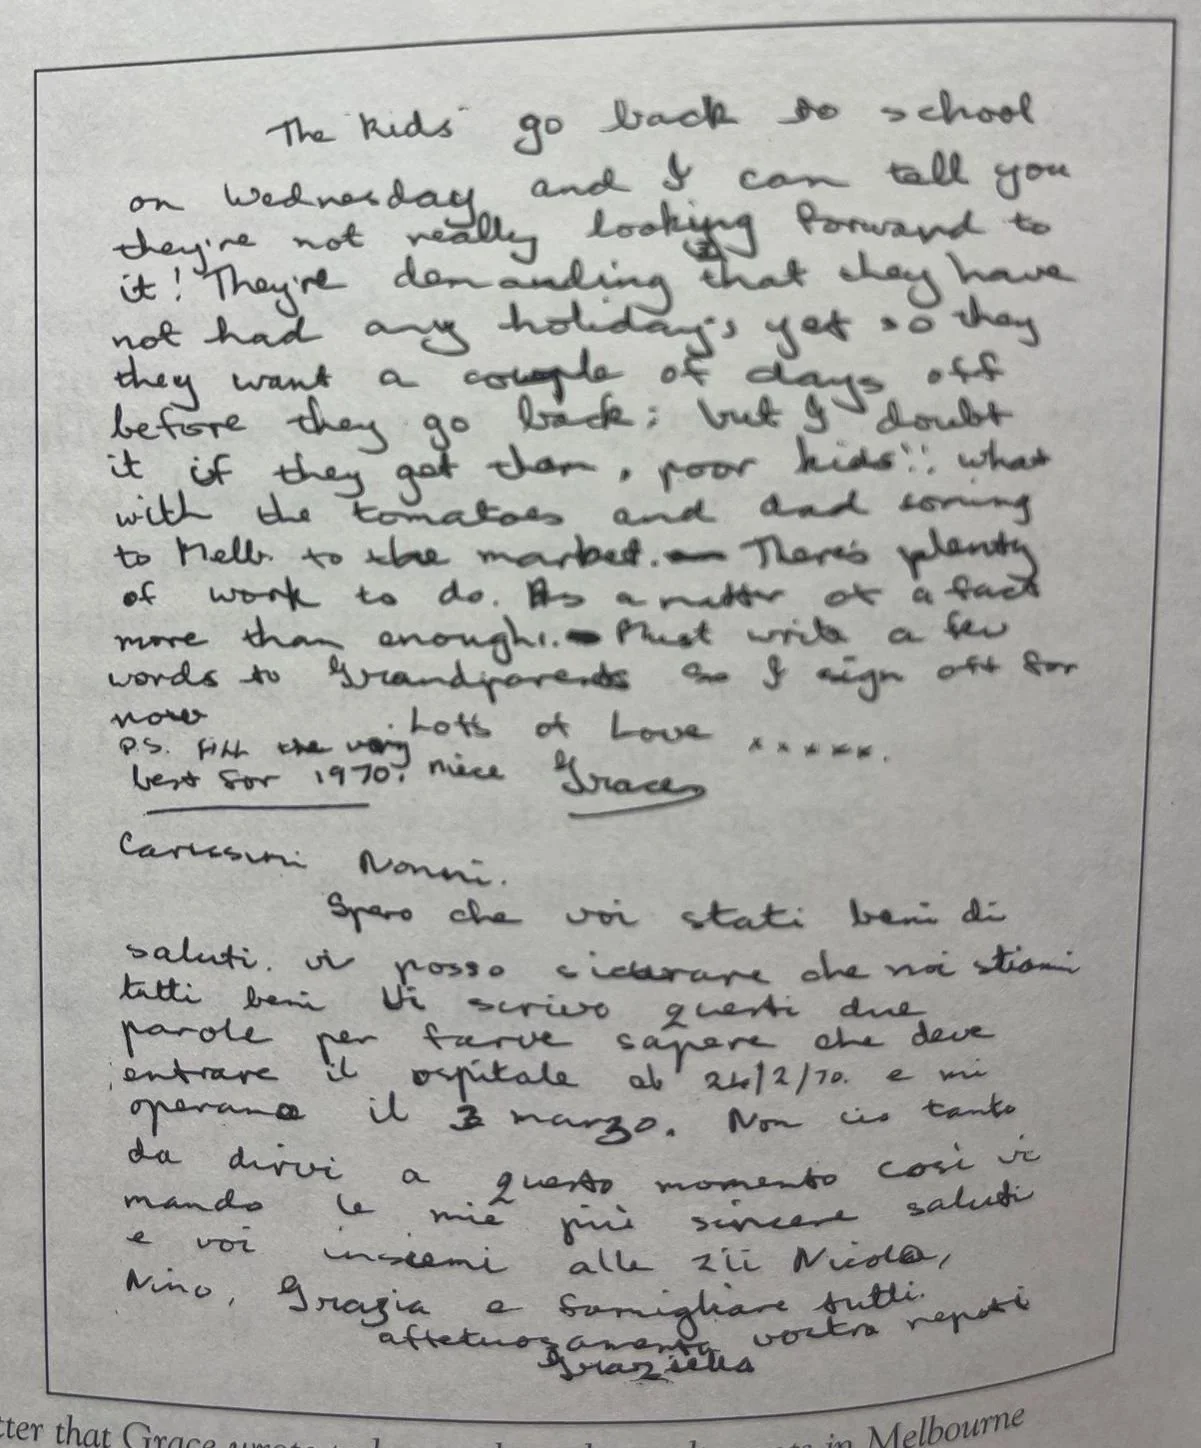 The "kids" go back to school
on Wednesday and I can tell you
they're not really looking forward to
it! They're demanding that they have
not had any holiday's yet so they
they want a couple of days off
before they go back; but I doubt
it if they get them, poor kids!! what
with the tomatoes and dad coming
to Melb. to the market. There's plenty
of work to do. As a matter of a fact
more than enough!. Must write a few
words to Grandparents so I sign off for
now
Lots of Love x x x x x.
P.S. All the very
best for 1970.
niece Grace
Carissimi Nonni.
Spero che voi stati beni di
saluti. vi posso sicurare che noi stiami
tutti beni Vi scrivo questi due
parole per farve sapere che deve
entrare il ospitale ab 24/2/70. e mi
operano il 3 marzo. Non cio tanto
da dirvi a questo momento così vi
mando le mie più sincere saluti
e voi insiemi alle zii Nicola,
Nino, Grazia e famigliare tutti.
affetuosamenta vostra nepoti
Graziella
tter that Grace wrote in Melbourne